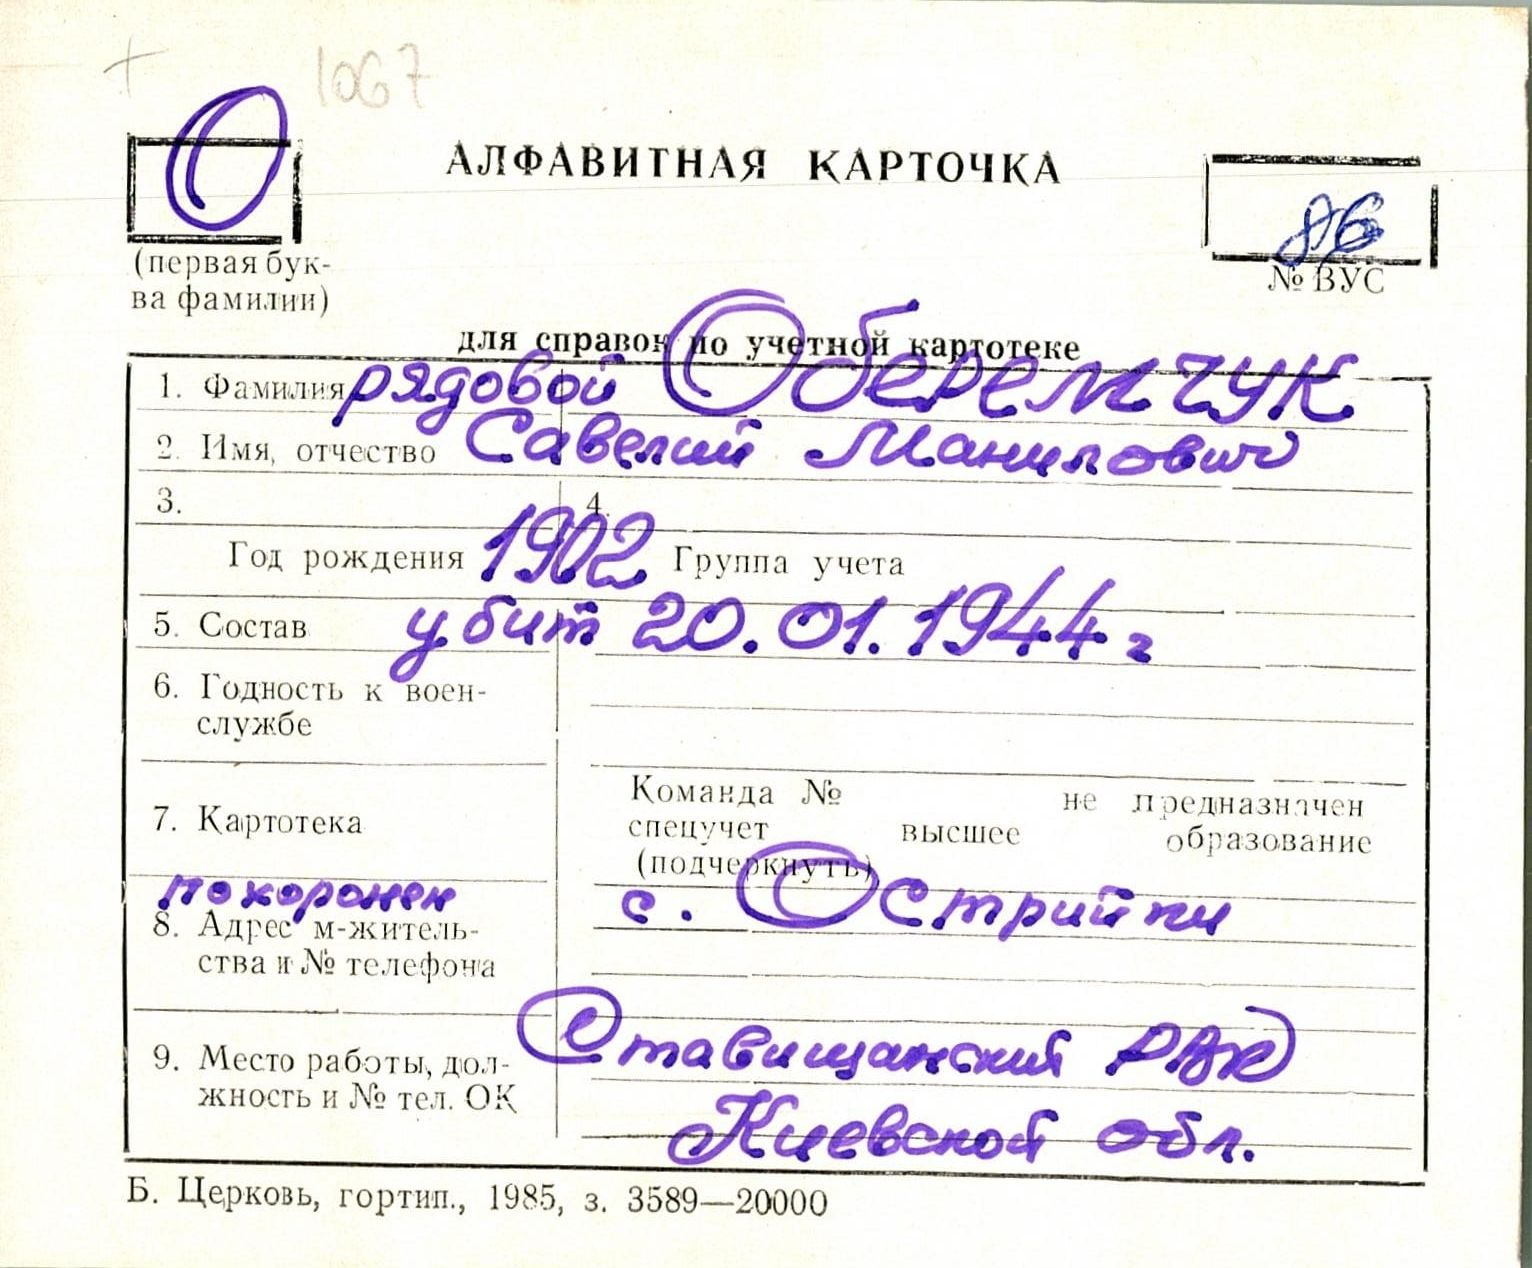 1067
О
АЛФАВИТНАЯ КАРТОЧКА
86
(первая бук-
ва фамилии)
№ ВУС
для справок по учетной картотеке
1. Фамилия рядовой Оберемчук
2. Имя, отчество Савелий Манилович
3. 4.
Год рождения 1902 Группа учета
5. Состав убит 20.01.1944 г
6. Годность к воен-
службе
Команда № не предназначен
7. Картотека
спецучет высшее образование
(подчеркнуть)
похоронен с. Острийки
8. Адрес м-житель-
ства и № телефона
Ставищанский РВК
9. Место работы, дол-
жность и № тел. ОК
Киевской обл.
Б. Церковь, гортип., 1985, з. 3589—20000